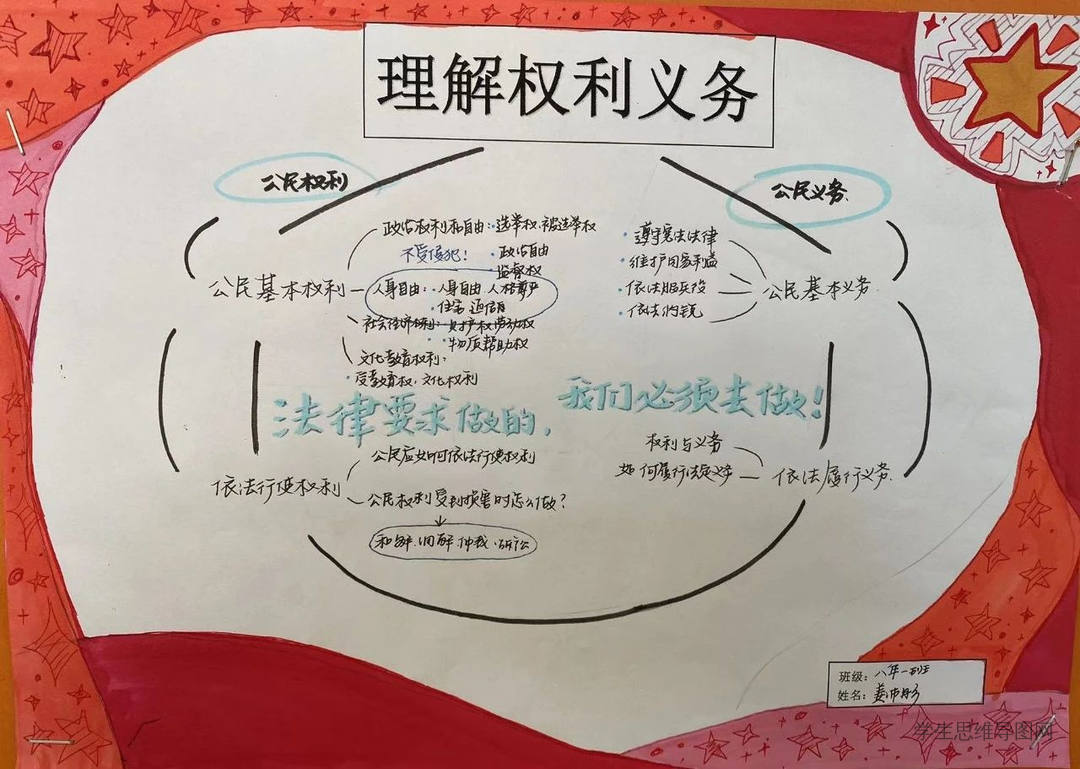 理解权利义务
公民权利
公民义务
政治权利和自由:选举权.被选举权
不受侵犯!
·政治自由
·监督权
公民基本权利
人身自由:·人身自由 人格尊严
·住宅 通信自
社会经济权利:·财产权 劳动权
·物质帮助权
文化教育权利:
·受教育权.文化权利
·遵守宪法法律
·维护国家利益
·依法服兵役
·依法纳税
公民基本义务.
法律要求做的,
我们必须去做!
公民应如何依法行使权利
依法行使权利
公民权利受到损害时怎么做?
和解.调解.仲裁.诉讼
权利与义务
如何履行法定义务
依法履行义务.
班级:八年一班
姓名:姜
学生思维导图网